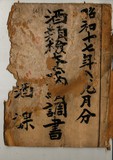 昭和十七年八、九月分
酒類検査高調書
酒課